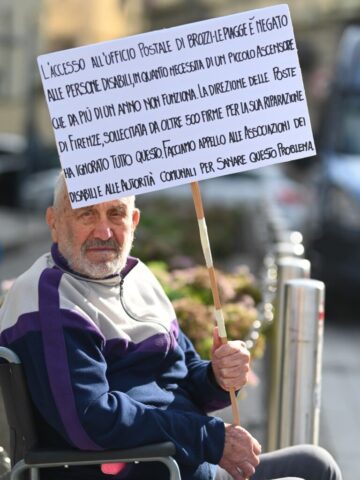 L'ACCESSO ALL'UFFICIO POSTALE DI BROZZI-LE PIAGGE È NEGATO
ALLE PERSONE DISABILI, IN QUANTO NECESSITA DI UN PICCOLO ASCENSORE
CHE DA PIÙ DI UN ANNO NON FUNZIONA. LA DIREZIONE DELLE POSTE
DI FIRENZE, SOLLECITATA DA OLTRE 500 FIRME PER LA SUA RIPARAZIONE
HA IGNORATO TUTTO QUESTO, FACCIAMO APPELLO ALLE ASSOCIAZIONI DEI
DISABILI E ALLE AUTORITÀ COMUNALI PER SANARE QUESTO PROBLEMA.